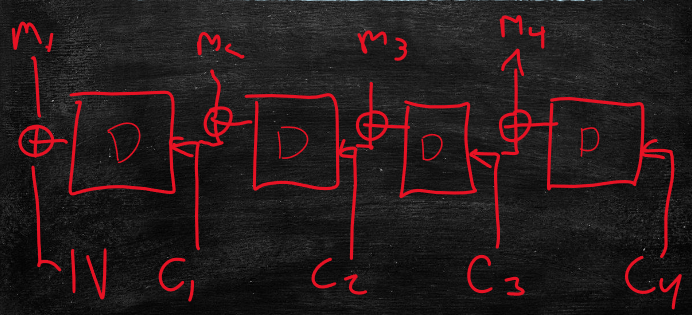 m₁ M₂ m₃ M₄
D D D D
IV C₁ C₂ C₃ C₄